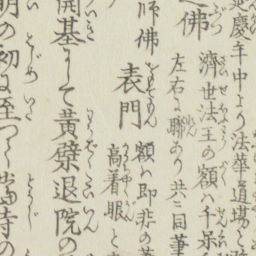 延慶年中より法華道場と
濟世法王の額ハ千呆
左右に聯あり共に同筆
佛
師佛
表門 額ハ即非の
高着眼と
開基にして黄檗退院の
明の初に至つて當寺の